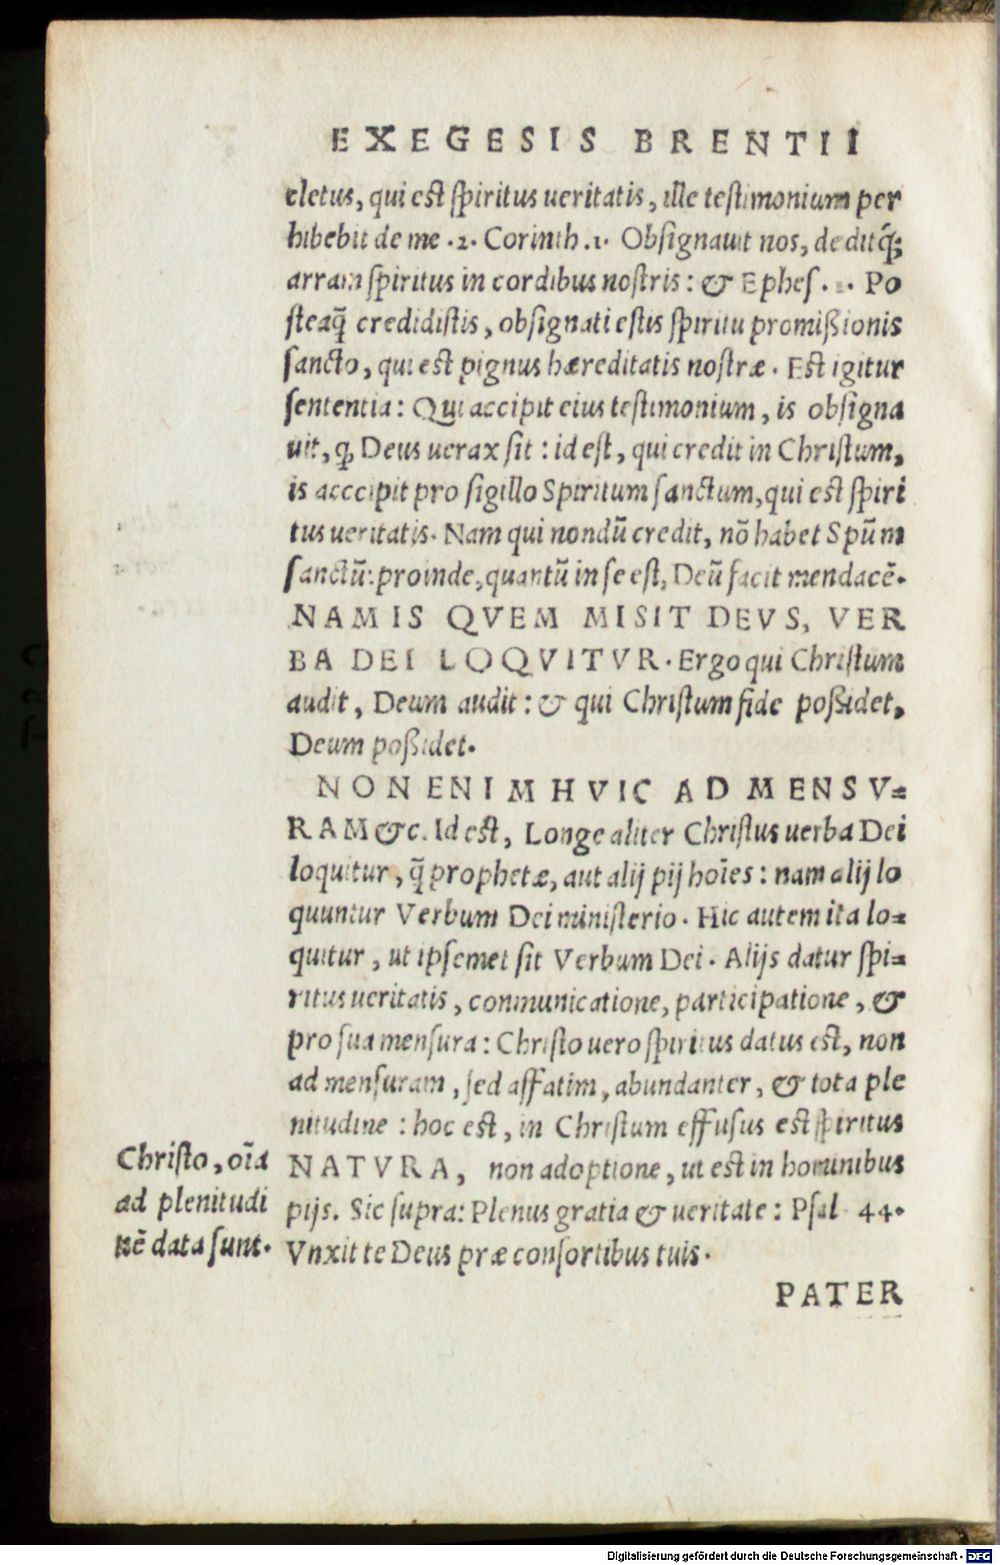 EXEGESIS BRENTII
cletus, qui est spiritus ueritatis, ille testimonium per
hibebit de me .2. Corinth.1. Obsignauit nos, deditq́;
arram spiritus in cordibus nostris: & Ephes. 1. Po
steaq̃ credidistis, obsignati estis spiritu promißionis
sancto, qui est pignus hæreditatis nostræ. Est igitur
sententia: Qui accipit eius testimonium, is obsigna
uit, ꝙ Deus uerax sit: id est, qui credit in Christum,
is acccipit pro sigillo Spiritum sanctum, qui est spiri
tus ueritatis. Nam qui nondũ credit, nõ habet Spũm
sanctũ: proinde, quantũ in se est, Deũ facit mendacẽ.
NAM IS QVEM MISIT DEVS, VER
BA DEI LOQVITVR. Ergo qui Christum
audit, Deum audit: & qui Christum fide poßidet,
Deum poßidet.
NON ENIM HVIC AD MENSV=
RAM &c. Id est, Longe aliter Christus uerba Dei
loquitur, q̃ prophetæ, aut alij pij hoĩes: nam alij lo
quuntur Verbum Dei ministerio. Hic autem ita lo=
quitur, ut ipsemet sit Verbum Dei. Alijs datur spi=
ritus ueritatis, communicatione, participatione, &
pro sua mensura: Christo uero spiritus datus est, non
ad mensuram, sed affatim, abundanter, & tota ple
nitudine: hoc est, in Christum effusus est spiritus
NATVRA, non adoptione, ut est in hominibus
pijs. Sic supra: Plenus gratia & ueritate: Psal 44.
Vnxit te Deus præ consortibus tuis.
Christo, oĩa
ad plenitudi
nẽ data sunt.
PATER
Digitalisierung gefördert durch die Deutsche Forschungsgemeinschaft - DFG